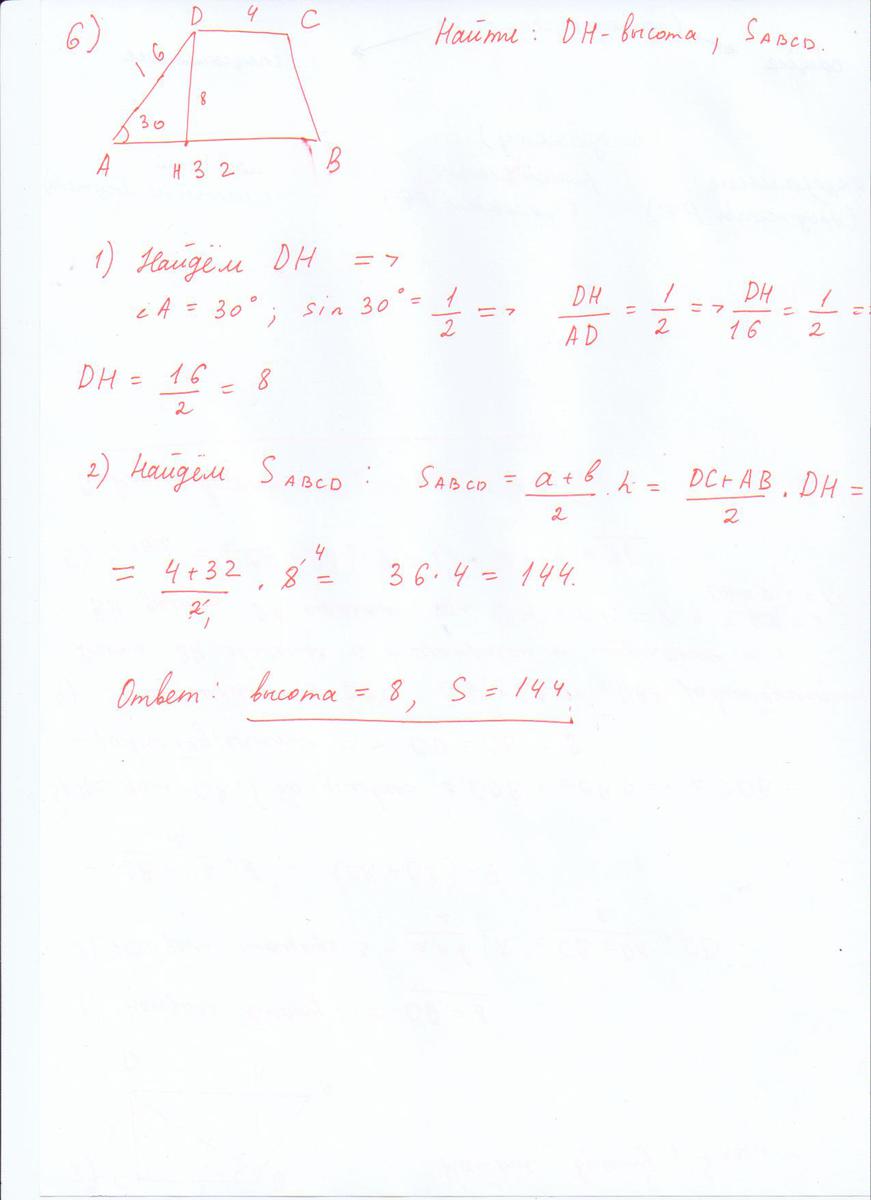 6)
D 4 C
16
8
30
A H 32 B
Найти: DH - высота, S ABCD.
1) Найдём DH =>
∠A = 30°; sin 30° = 1/2 => DH/AD = 1/2 => DH/16 = 1/2 =
DH = 16/2 = 8
2) Найдём S ABCD: S ABCD = a + b/2 · h = DC + AB/2 · DH =
= 4 + 32/2 1 · 8 4 = 36 · 4 = 144.
Ответ: высота = 8, S = 144.